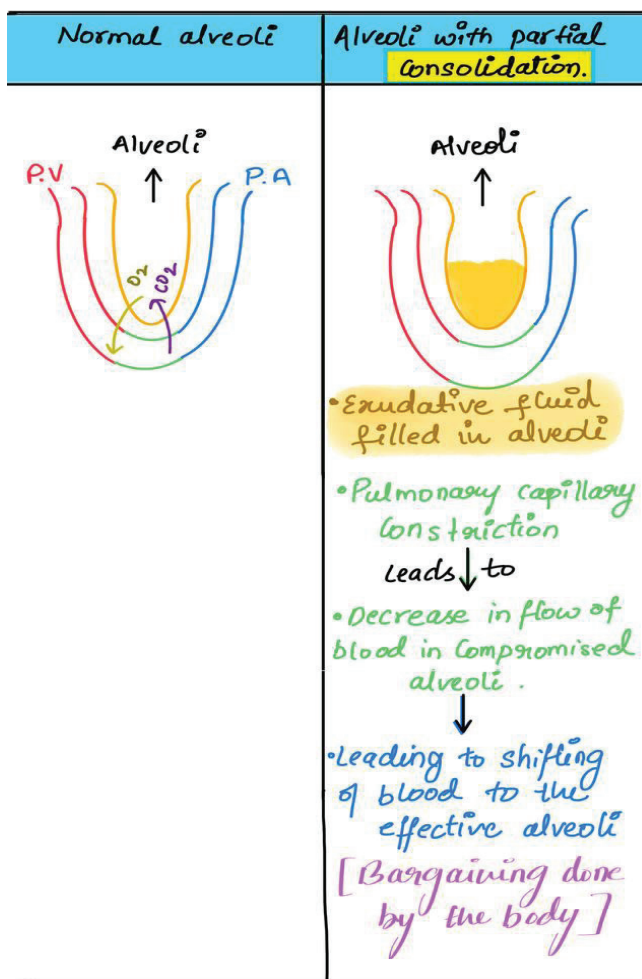 Normal alveoli
Alveoli with partial
Consolidation.
Alveoli
P.V
P.A
O2
CO2
Alveoli
• Exudative fluid
filled in alveoli
• Pulmonary capillary
Constriction
Leads to
• Decrease in flow of
blood in Compromised
alveoli.
• Leading to shifting
of blood to the
effective alveoli
[Bargaining done
by the body]